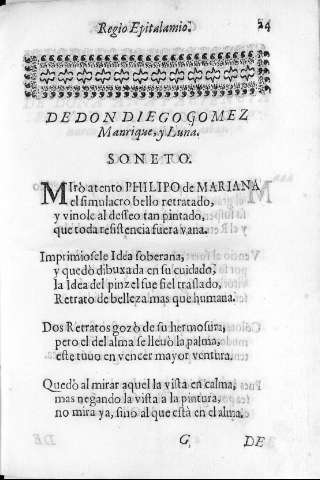 Regio Epitalamio. 24
DE DON DIEGO GOMEZ
Manrique, y Luna.
SONETO.
MIrò atento PHILIPO de MARIANA
el simulacro bello retratado,
y vinole al desseo tan pintado,
que toda resistencia fuera vana.
Imprimiosele Idea soberana,
y quedò dibuxada en su cuidado,
la Idea del pinzel fue fiel traslado,
Retrato de belleza mas que humana.
Dos Retratos gozò de su hermosura,
pero el del alma se lleuò la palma,
este tuuo en vencer mayor ventura.
Quedò al mirar aquel la vista en calma,
mas negando la vista a la pintura,
no mira ya, sino al que està en el alma.
G, DE